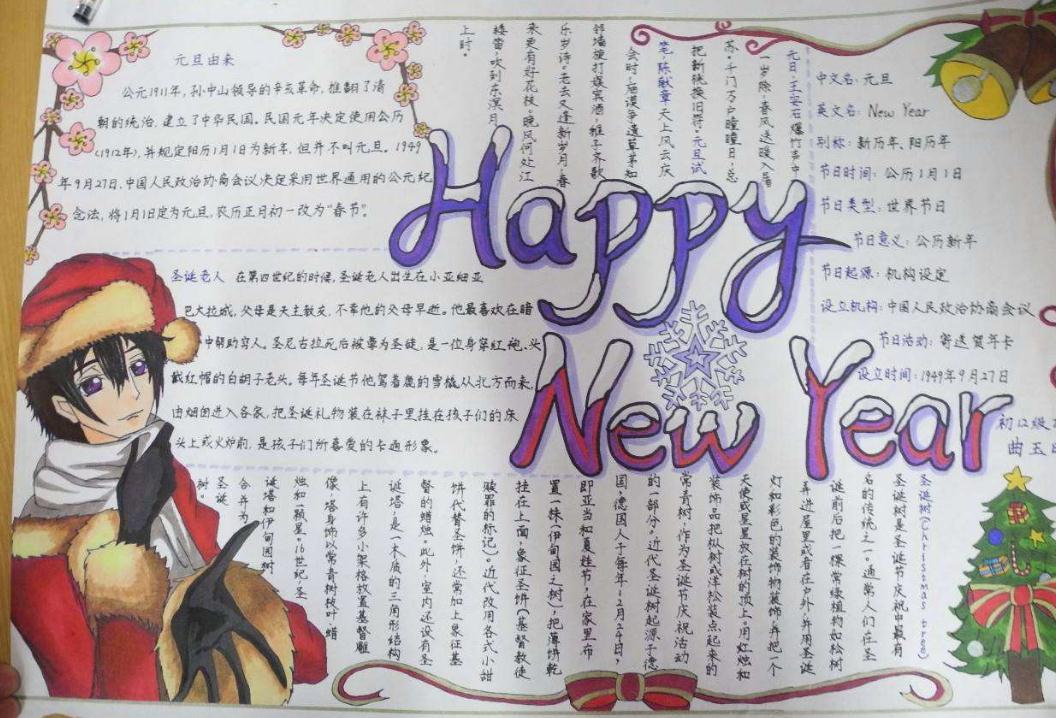 元旦由来
公元1911年，孙中山领导的辛亥革命，推翻了清
朝的统治，建立了中华民国。民国元年决定使用公历
(1912年)，并规定阳历1月1日为新年，但并不叫元旦。1949
年9月27日，中国人民政治协商会议决定采用世界通用的公元纪
念法，将1月1日定为元旦，农历正月初一改为“春节”。
元日·王安石爆竹声中
一岁除，春风送暖入屠
苏。千门万户曈曈日，总
把新桃换旧符。元旦试
笔，陈献章天上风云庆
会时，庙谟争遣草茅知
邻墙旋打娱宾酒，稚子齐歌
乐岁诗。老去又逢新岁月，春
来更有好花枝。晚风何处江
楼笛，吹到东溟月
上时。
Happy
New Year
中文名：元旦
英文名：New Year
别称：新历年、阳历年
节日时间：公历1月1日
节日类型：世界节日
节日意义：公历新年
节日起源：机构设定
设立机构：中国人民政治协商会议
节日活动：寄送贺年卡
设立时间：1949年9月27日
初12级
曲玉
圣诞老人 在第四世纪的时候，圣诞老人出生在小亚细亚
巴大拉城，父母是天主教友，不幸他的父母早逝。他最喜欢在暗
中帮助穷人。圣尼古拉死后被尊为圣徒，是一位身穿红袍、头
戴红帽的白胡子老头。每年圣诞节他驾着鹿的雪橇从北方而来，
由烟囱进入各家，把圣诞礼物装在袜子里挂在孩子们的床
头上或火炉前，是孩子们所喜爱的卡通形象。
圣诞树(Christmas tree)
圣诞树是圣诞节庆祝中最有
名的传统之一。通常人们在圣
诞前后把一棵常绿植物如松树
弄进屋里或者在户外，并用圣诞
灯和彩色的装饰物装饰，并把一个
天使或星星放在树的顶上。用红烛和
装饰品把枞树或洋松装点起来的
常青树，作为圣诞节庆祝活动
的一部分。近代圣诞树起源于德
国，德国人于每年12月24日，
即亚当和夏娃节，在家里布
置一株(伊甸园之树)，把薄饼乾
挂在上面，象征圣饼(基督教徒
赎罪的标记)。近代改用各式小甜
饼代替圣饼，还常加上象征基
督的蜡烛。此外，室内还设有圣
诞塔，是一木质的三角形结构
上有许多小架格放置基督雕
像，塔身饰以常青树枝叶、蜡
烛和一颗星。16世纪，圣
诞塔和伊甸园树
合并为
圣诞
树。